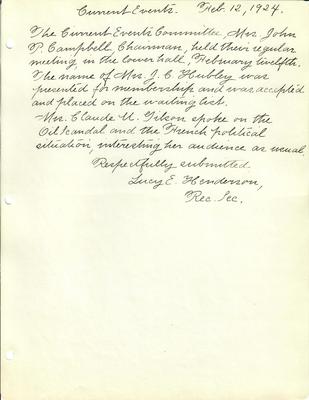 Current Events. Feb. 12, 1924.
The Current Events Committee, Mrs. John
P. Campbell, Chairman, held their regular
meeting in the lower hall, February twelfth.
The name of Mrs. J. C. Hubley was
presented for membership and was accepted
and placed on the waiting list.
Mrs. Claude U. Gilson spoke on the
Oil Scandal and the French political
situation, interesting her audience as usual.
Respectfully submitted
Lucy E. Henderson,
Rec. Sec.